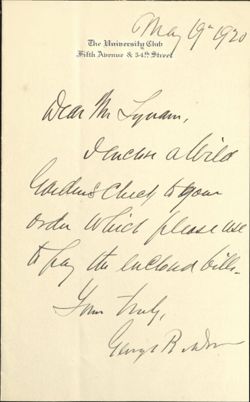 May 19th 1920
The University Club
Fifth Avenue & 54th Street
Dear Mr Lynam,
I enclose a Wild
Gardens check to your
order which please use
to pay the enclosed bills.
Yours truly,
George B. Dorr